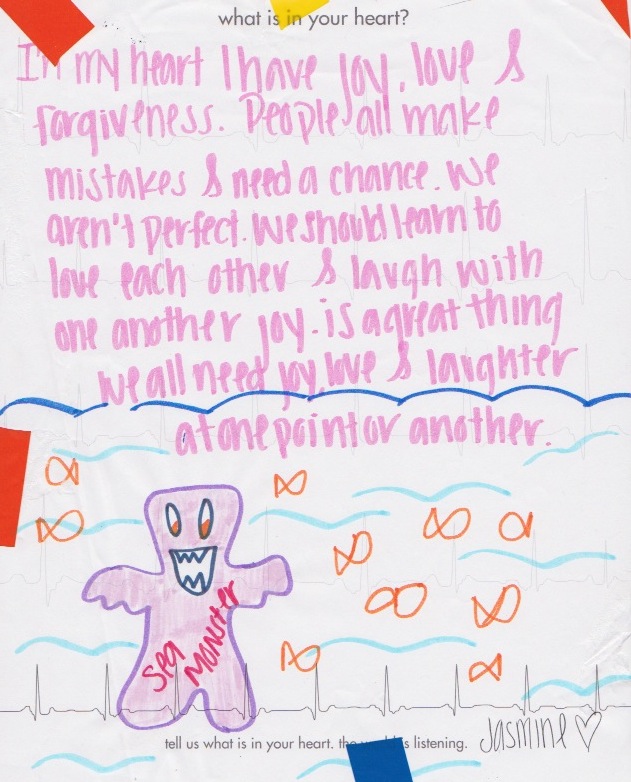 what is in your heart?
In my heart I have joy, love &
forgiveness. People all make
mistakes & need a chance. We
aren't perfect. We should learn to
love each other & laugh with
one another joy. is a great thing
We all need joy, love & laughter
at one point or another.
Sea
Monster
tell us what is in your heart. the world is listening.
Jasmine